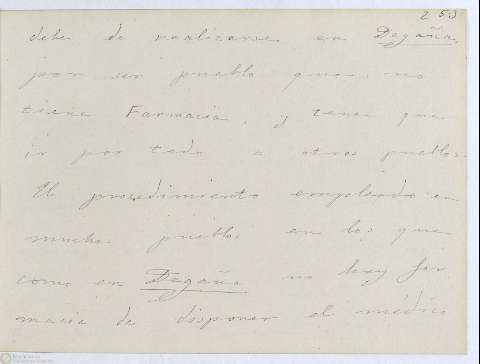 253
debe de realizarse en Degaña,
por ser pueblo que, no
tiene Farmacia, y tener que
ir por todo a otros pueblos.
El procedimiento empleado en
muchos pueblos en los que
como en Degaña no hay far
macia de disponer el médico